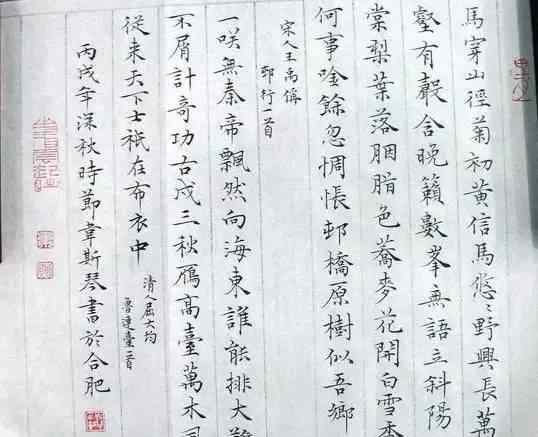 馬穿山徑菊初黃信馬悠〻野興長萬
壑有聲含晚籟數峯無語立斜陽
棠梨葉落胭脂色蕎麥花開白雪香
何事吟餘忽惆悵邨橋原樹似吾鄉
宋人王禹偁
邨行一首
一咲無秦帝飄然向海東誰能排大難
不屑計奇功古戍三秋雁高臺萬木
從来天下士祇在布衣中
清人屈大均
魯連臺一首
丙戌年深秋時節韋斯琴書於合肥